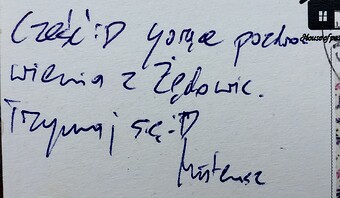 Cześć :D gorące pozdro
wienia z Żędowic.
Trzymaj się :D
Mateusz